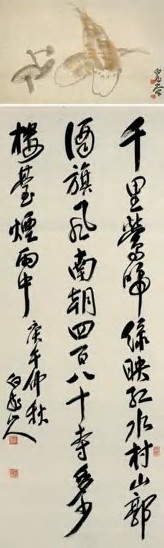 千里鶯啼綠映紅水村山郭
酒旗風南朝四百八十寺多少
樓臺煙雨中
庚午仲秋